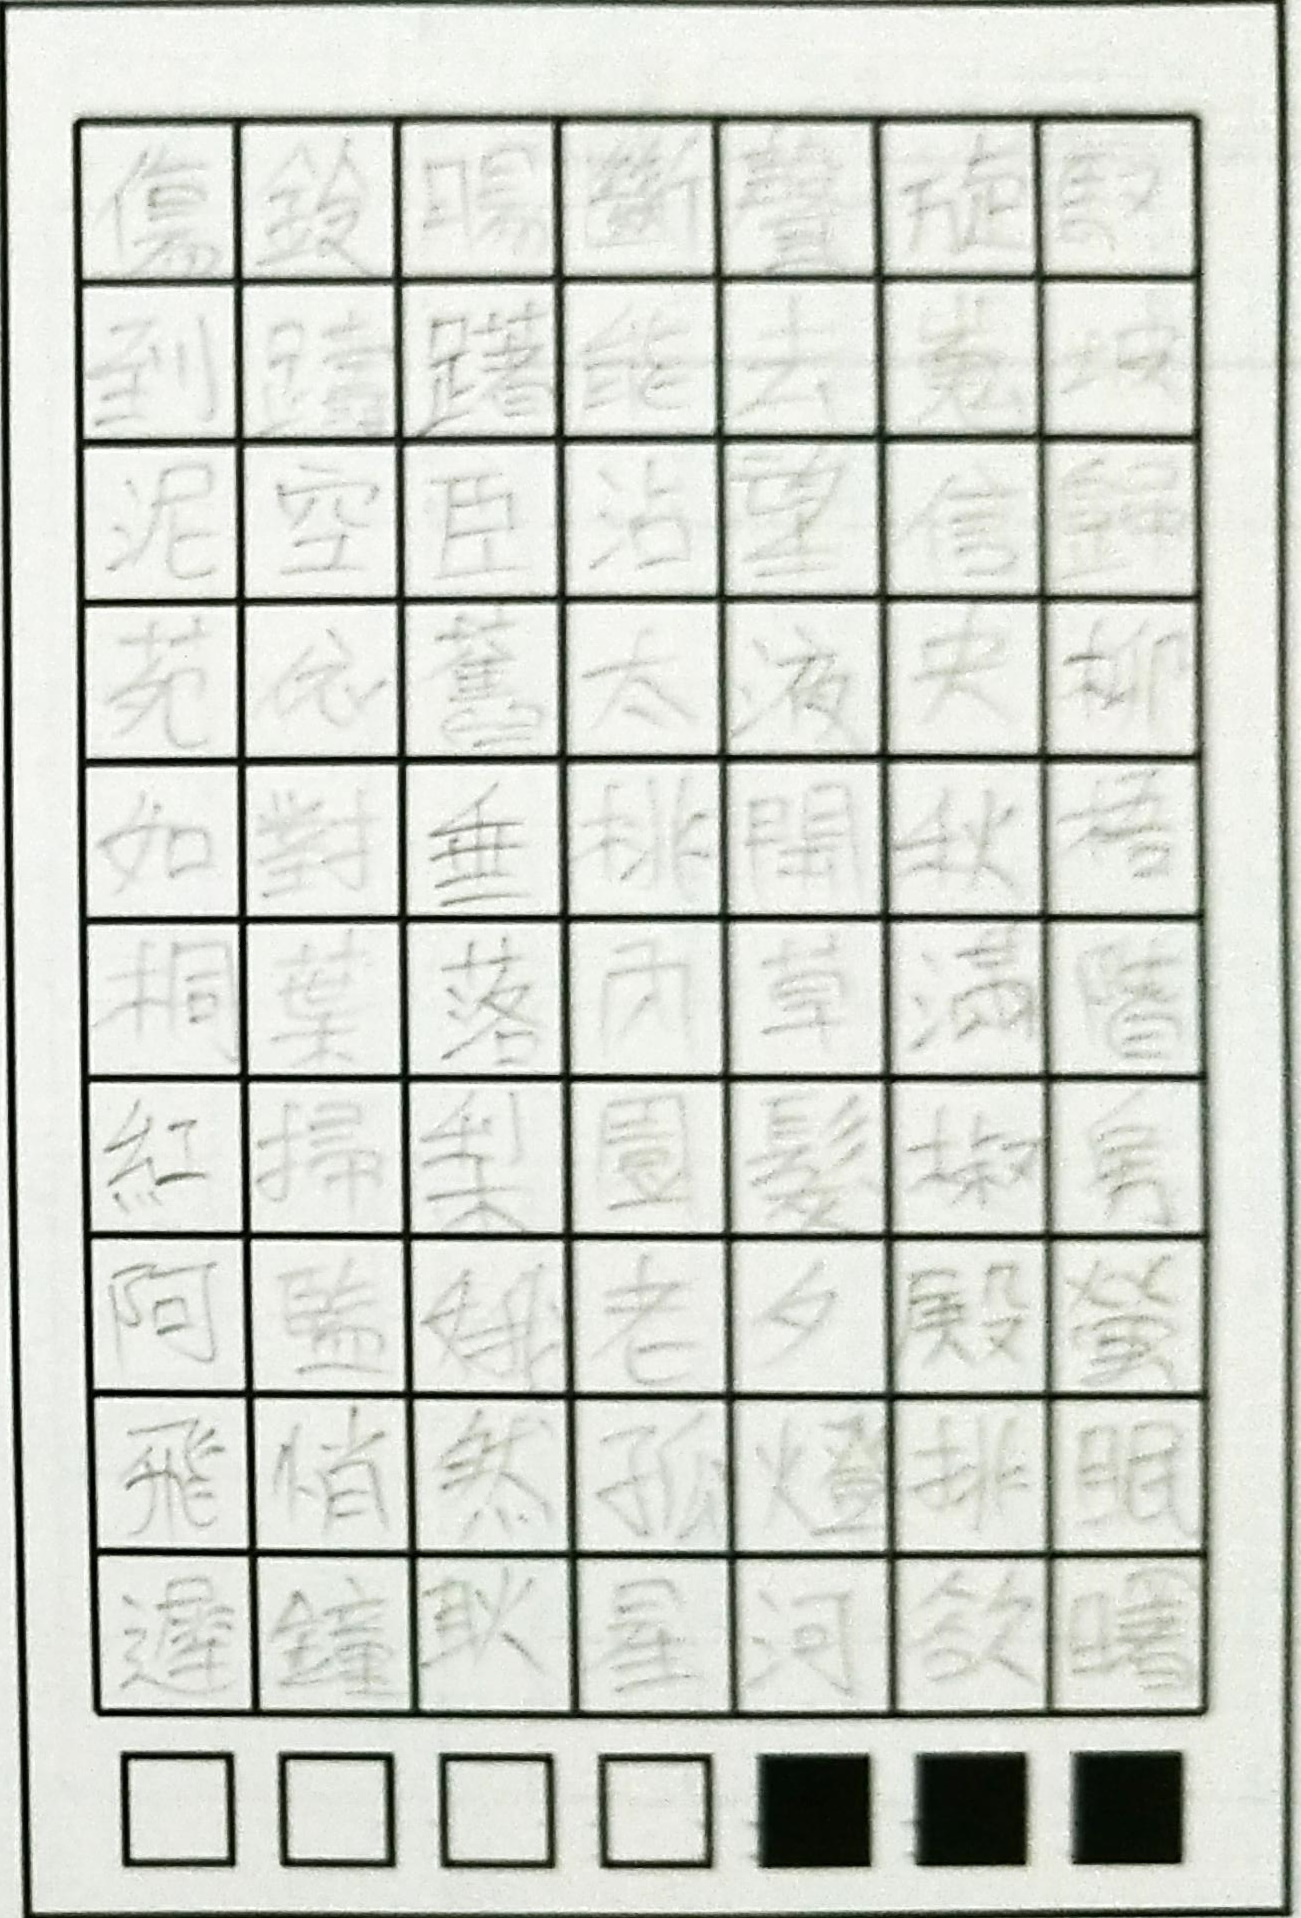 傷鈴腸斷聲旋馭
到躊躇能去冕坡
泥空臣沾望信歸
苑依舊太液央柳
如對垂挑開秋梧
桐葉落內草滿階
紅掃梨園髮椒宮
阿監娥老夕殿螢
飛悄然孤燈挑眠
遲鐘耿星河欲曙